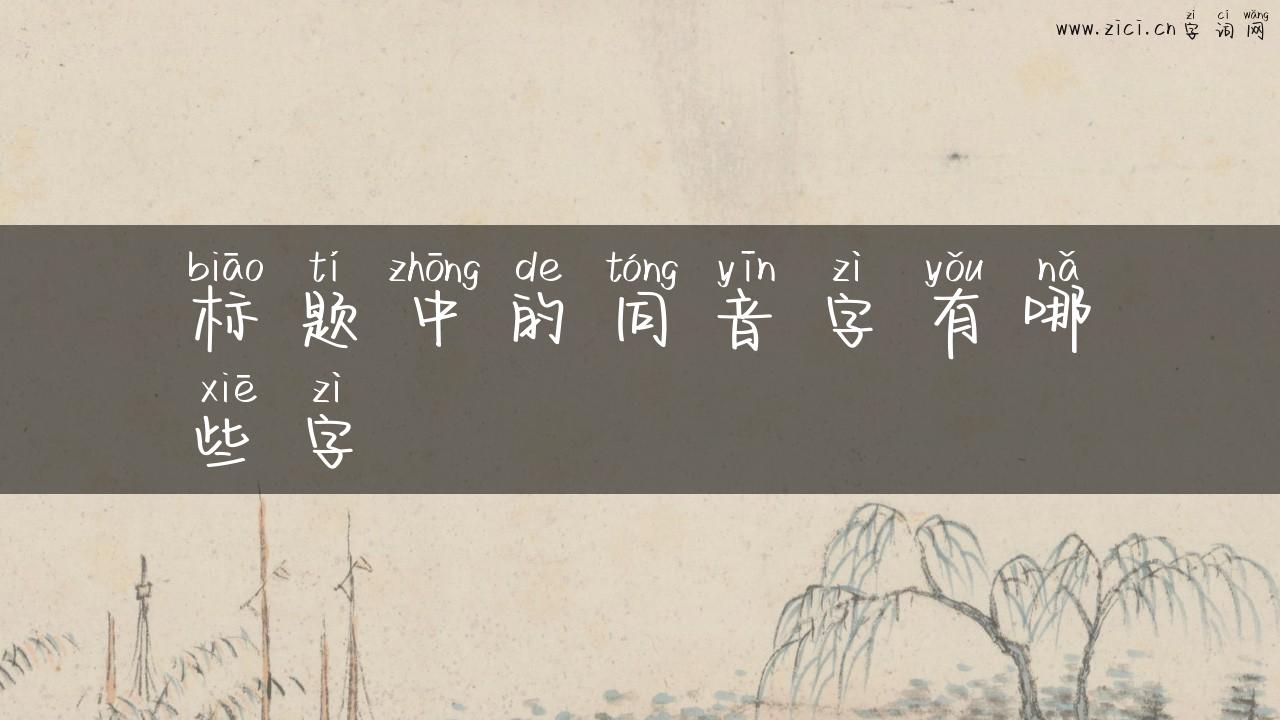 zì cí wǎng
www.zici.cn 字词网
biāo tí zhōng de tóng yīn zì yǒu nǎ
标题中的同音字有哪
xiē zì
些字